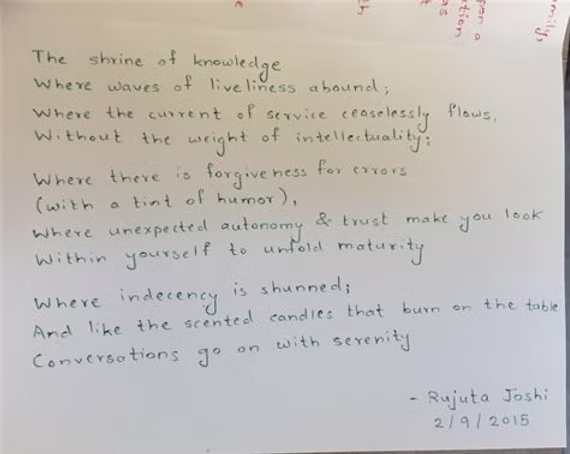 The shrine of knowledge
Where waves of liveliness abound;
Where the current of service ceaselessly flows,
Without the weight of intellectuality;
Where there is forgiveness for errors
(with a tint of humor),
Where unexpected autonomy & trust make you look
Within yourself to unfold maturity
Where indecency is shunned;
And like the scented candles that burn on the table
Conversations go on with serenity
- Rujuta Joshi
2/9/2015